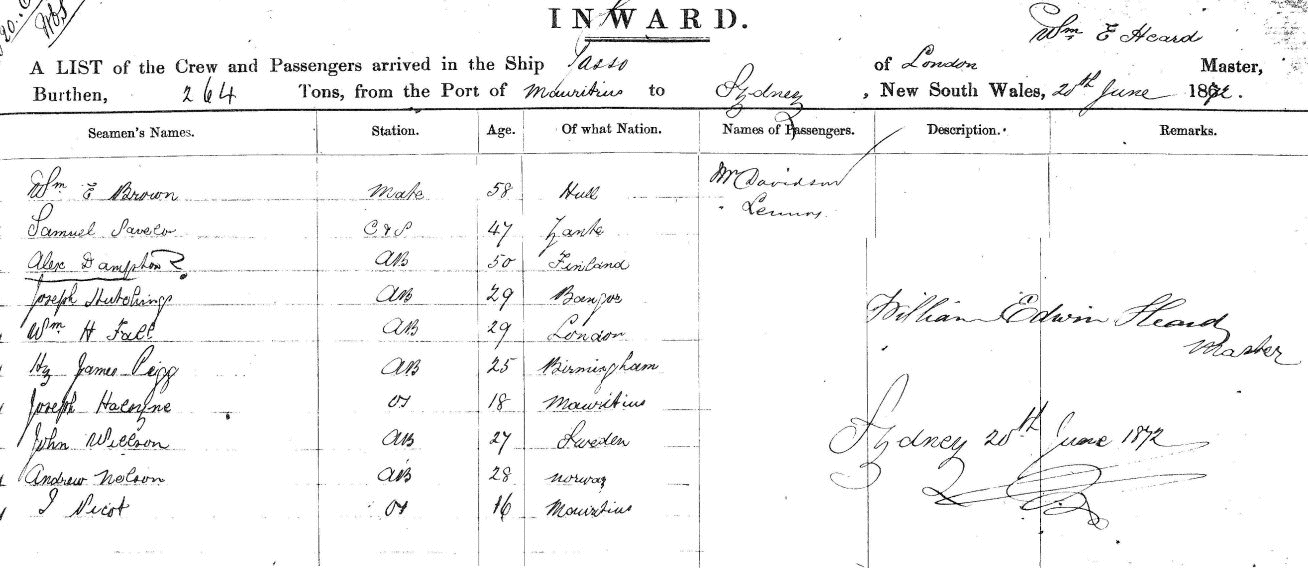 INWARD.
Wm E Heard
A LIST of the Crew and Passengers arrived in the Ship Tasso of London Master,
Burthen, 264 Tons, from the Port of Mauritius to Sydney, New South Wales, 20th June 1872.
Seamen's Names. Station. Age. Of what Nation. Names of Passengers. Description. Remarks.
Wm E Brown Mate 58 Hull Mr Davidson
Lennox
Samuel C & S 47 Zante
Alex Dampton ? AB 50 Finland
Joseph Hutchings AB 29 Bangor
William Edwin Heard
Wm H Fall AB 29 London
Master
Hy James Pigg AB 25 Birmingham
Joseph OS 18 Mauritius
John Willson AB 27 Sweden
Sydney 20th June 1872
Andrew Nelson AB 28 Norway
J Picot OS 16 Mauritius